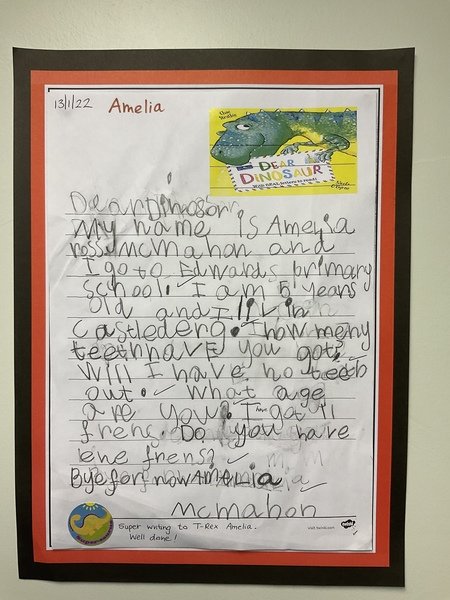 13/1/22 Amelia
DEAR
DINOSAUR
Dear Dinosor
My name is Amelia
rose mcmahon and
I go to Edwards primary
school. I am 5 years
old and I liv in
castlederg. How meny
teeth have you got?
Will I have no teeth
out. What age
are you? I have got 11
frens. Do you have
ene frens?
Bye for now Amelia
Mcmahon
Super writing to T-Rex Amelia.
Well done!
visit twinkl.com
twinkl